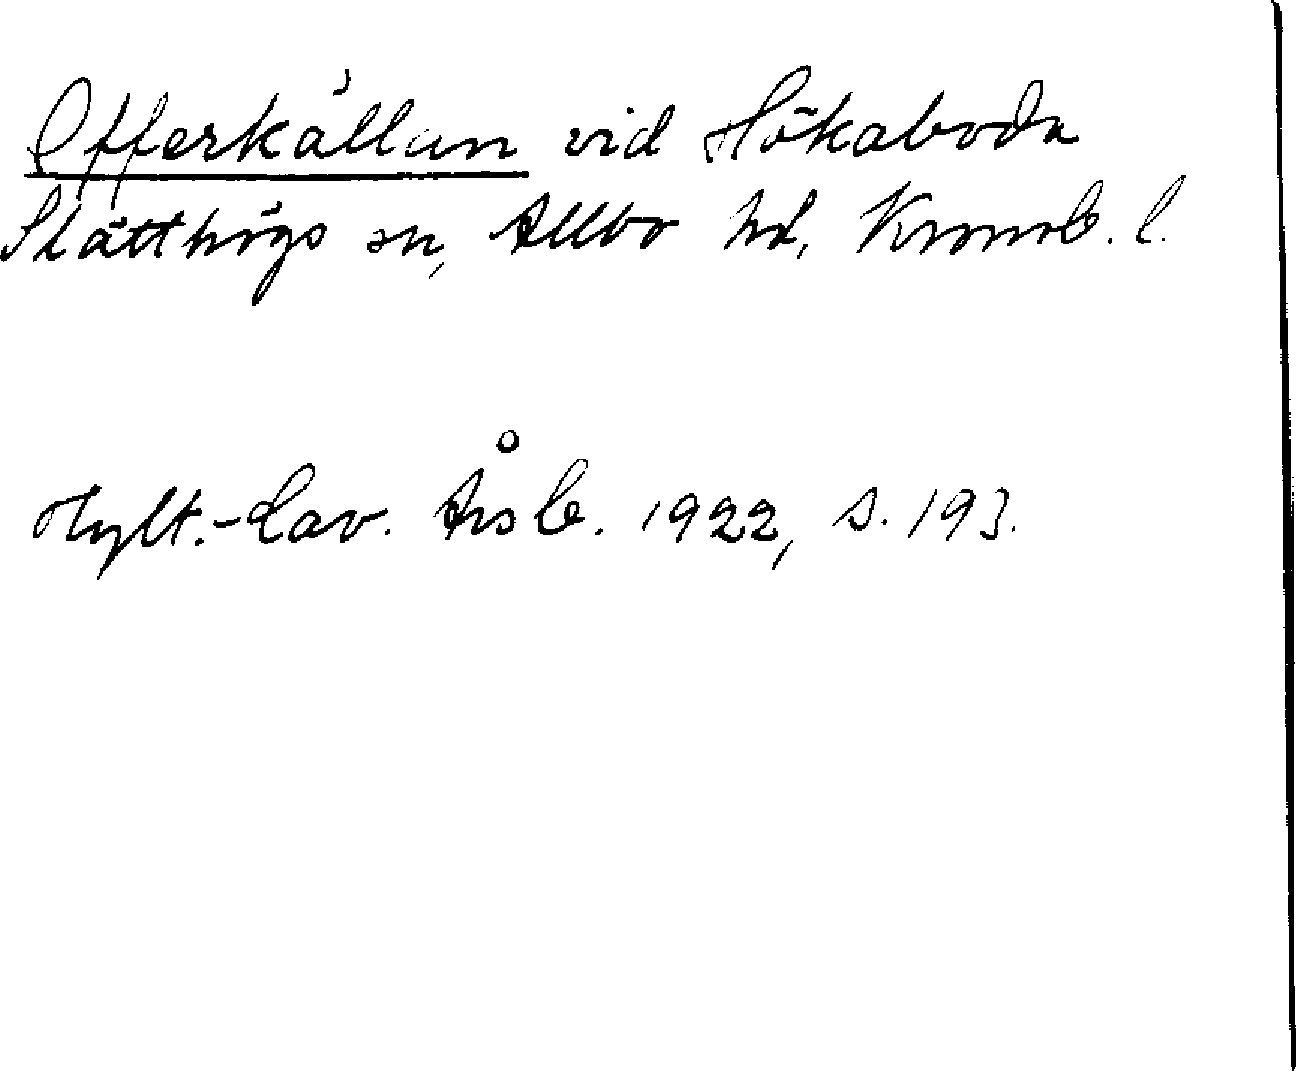 Offerkällan vid Hökaboda
Slätthögs sn, Allbo hd, Kronob. l.
Hylt.-Cav. Årsb. 1922, s. 193.